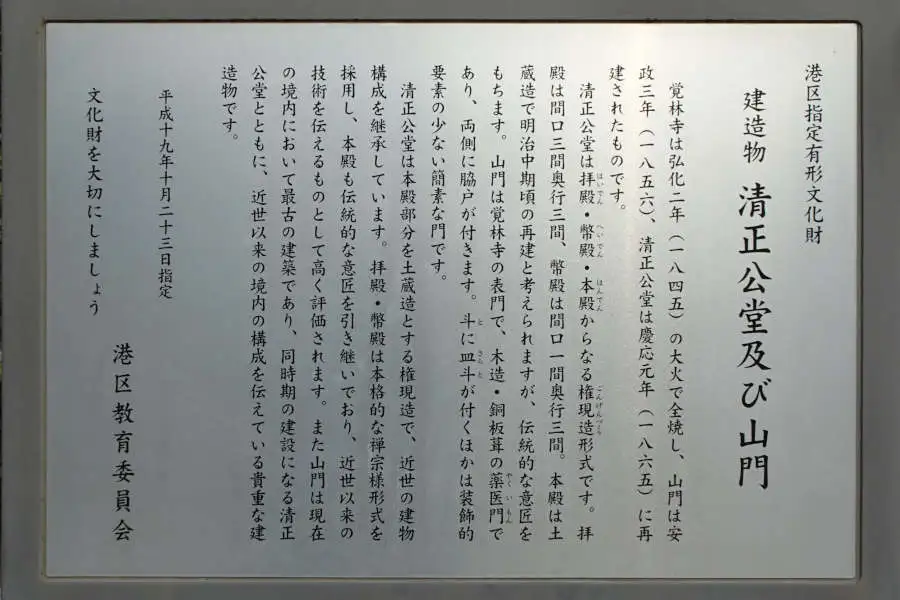 港区指定有形文化財
建造物 清正公堂及び山門
覚林寺は弘化二年（一八四五）の大火で全焼し、山門は安
政三年（一八五六）、清正公堂は慶応元年（一八六五）に再
建されたものです。
清正公堂は拝殿・幣殿・本殿からなる権現造形式です。拝
殿は間口三間奥行三間、幣殿は間口一間奥行三間。本殿は土
蔵造で明治中期頃の再建と考えられますが、伝統的な意匠を
もちます。山門は覚林寺の表門で、木造・銅板葺の薬医門で
あり、両側に脇戸が付きます。斗に皿斗が付くほかは装飾的
要素の少ない簡素な門です。
清正公堂は本殿部分を土蔵造とする権現造で、近世の建物
構成を継承しています。拝殿・幣殿は本格的な禅宗様形式を
採用し、本殿も伝統的な意匠を引き継いでおり、近世以来の
技術を伝えるものとして高く評価されます。また山門は現在
の境内において最古の建築であり、同時期の建設になる清正
公堂とともに、近世以来の境内の構成を伝えている貴重な建
造物です。
平成十九年十月二十三日指定
文化財を大切にしましょう
港区教育委員会